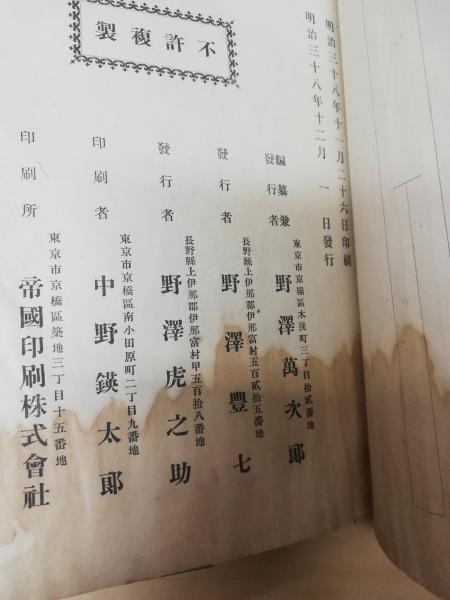 明治三十八年十一月二十六日印刷
明治三十八年十二月一日發行
不許複製
編纂兼
發行者
東京市京橋區木挽町三丁目拾貳番地
野澤萬次郞
發行者
長野縣上伊那郡伊那富村五百貳拾五番地
野澤豐七
發行者
長野縣上伊那郡伊那富村甲五百拾八番地
野澤虎之助
印刷者
東京市京橋區南小田原町二丁目九番地
中野鍈太郞
印刷所
東京市京橋區築地三丁目十五番地
帝國印刷株式會社